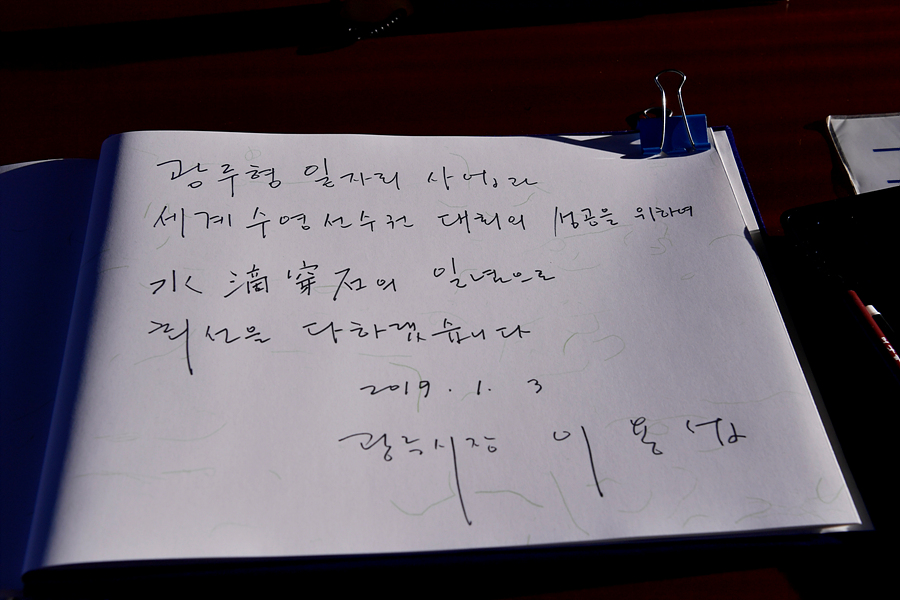 광주형 일자리 사업과
세계수영선수권 대회의 성공을 위하여
水滴穿石의 일념으로
최선을 다하겠습니다
2019. 1. 3
광주시장 이용섭